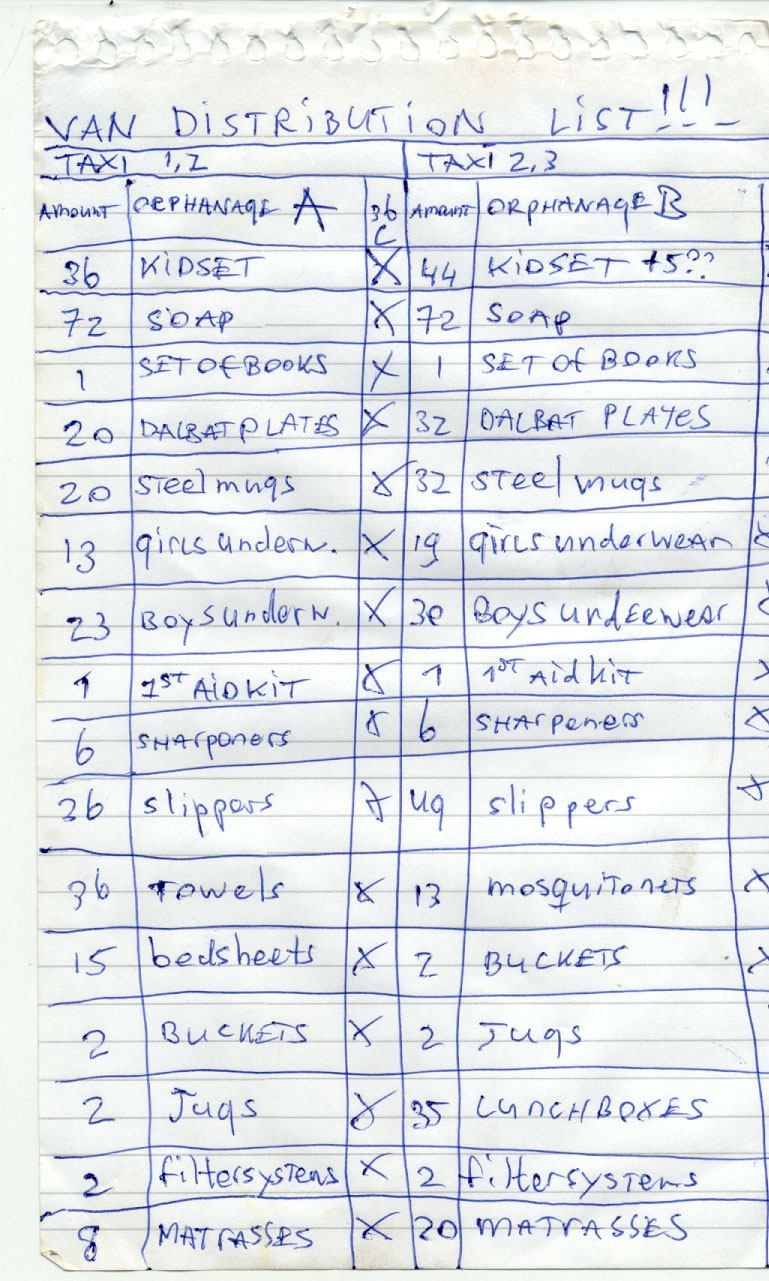 VAN DISTRIBUTION LIST!!!
TAXI 1,2 TAXI 2,3
Amount ORPHANAGE A 36 C Amount ORPHANAGE B
36 KIDSET X 44 KIDSET +5??
72 SOAP X 72 SOAP
1 SET OF BOOKS X 1 SET OF BOOKS
20 DALBAT PLATES X 32 DALBAT PLATES
20 steel mugs X 32 steel mugs
13 girls underw. X 19 girls underwear X
23 Boys underw. X 30 Boys underwear X
1 1ST AID KIT X 1 1ST Aid kit X
6 SHArpeners X 6 SHArpeners X
36 slippers X 49 slippers X
36 Towels X 13 mosquitonets X
15 bedsheets X 2 BUCKETS X
2 BUCKETS X 2 Jugs
2 Jugs X 35 LUNCHBOXES
2 filtersystems X 2 filtersystems
8 MATRASSES X 20 MATRASSES